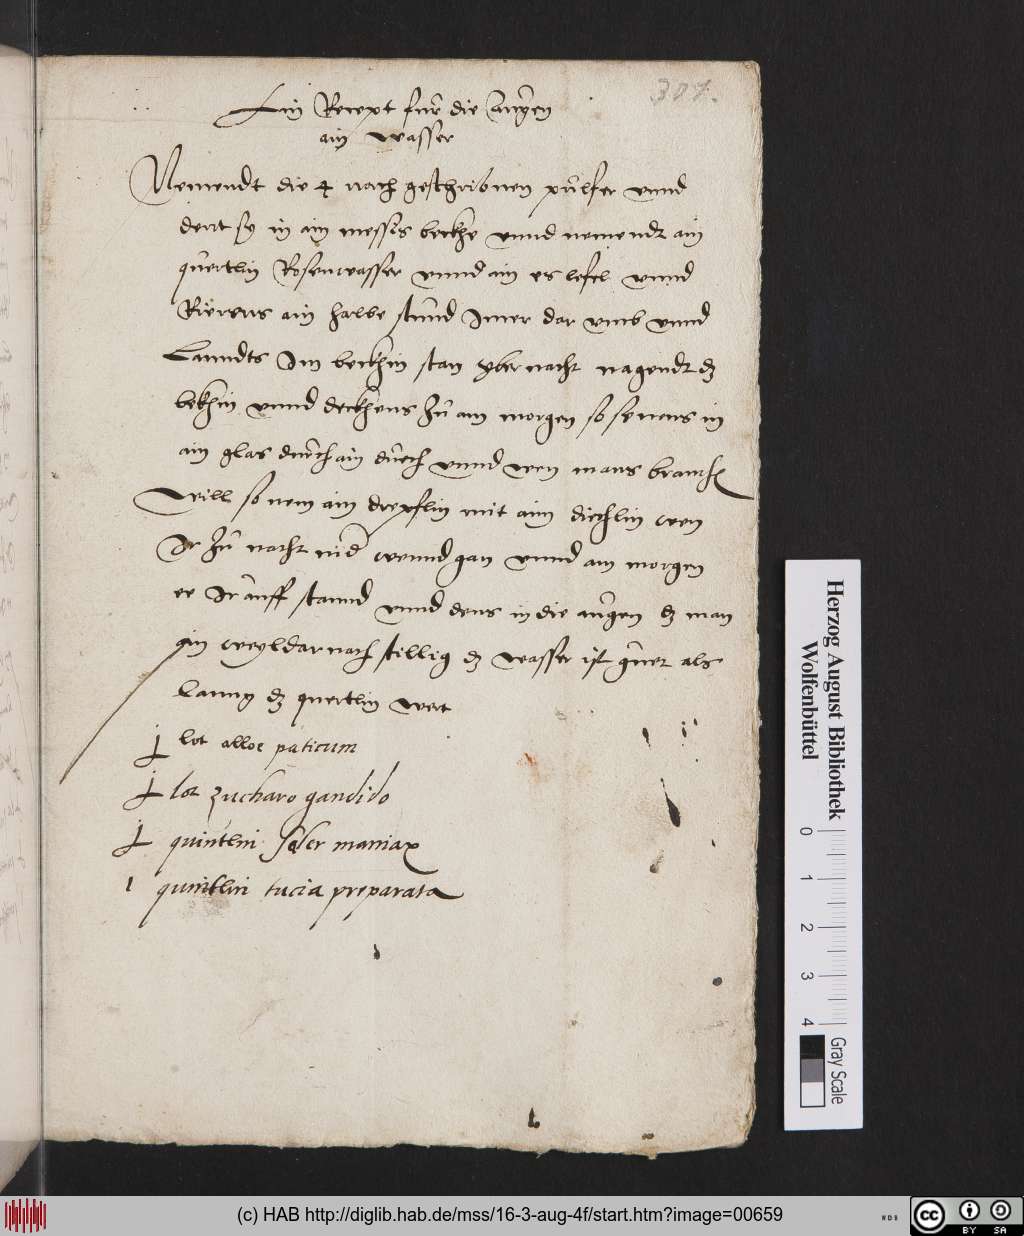 307.
Ein Recept fur die augen
ain wasser
Nemendt die 4 nach geschribnen pulfer vnnd
dent sy in ain messis beckhe vnnd nemendt ain
quertlin Rosenwasser vnnd ain es lefel vnnd
Rierens ain halbe stund Imer dar vmb vnnd
Lanndts Im beckhin stan yber nacht nagendt dz
bekhin vnnd deckhens zu am morgen so seuens in
ain glas durch ain duech vnnd wen mans brauchen
will so nem ain drepflin mit aim diechlin wen
Ir zu nacht nider wennd gan vnnd am morgen
ee Ir auff stannd vnnd dens in die augen dz man
ain weyl darnach stillig dz wasser ist guet als
Lanng dz quertlin wert
j lot alloe paticum
j lot zucharo gandido
j quintlin maniax
1 quintlin tucia preparata
Herzog August Bibliothek
Wolfenbüttel
0 1 2 3 4
Gray Scale
(c) HAB http://diglib.hab.de/mss/16-3-aug-4f/start.htm?image=00659
WDB
cc BY SA